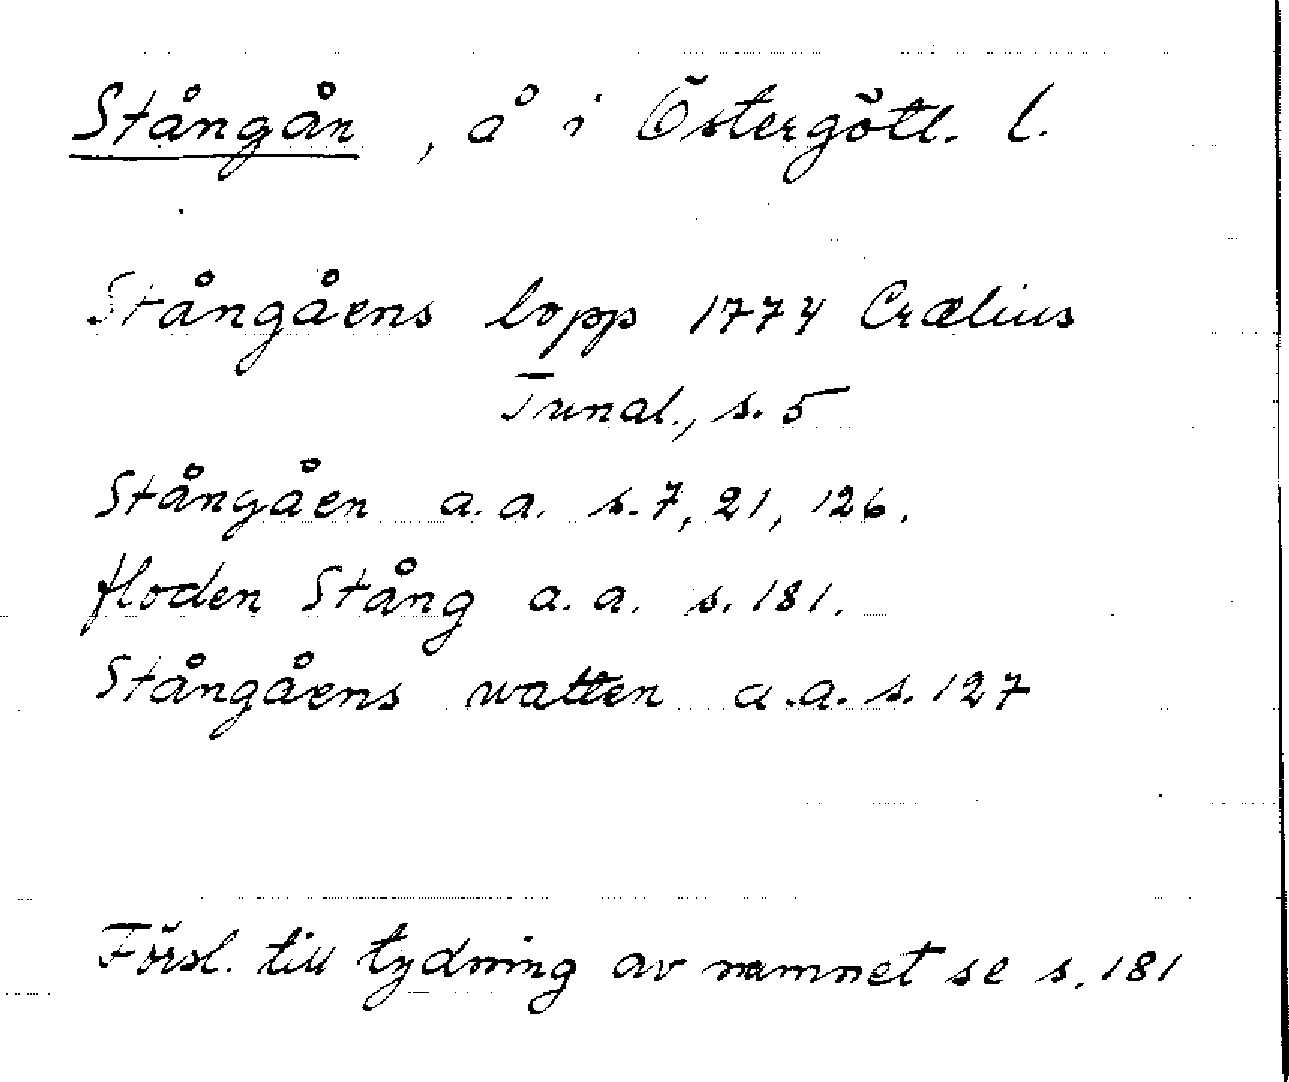 Stångån, å i Östergötl. l.
Stångåens lopp 1774 Crælius
Tunal., s. 5
Stångåen a.a. s. 7, 21, 126.
floden Stång a.a. s. 181.
Stångåens watten a.a. s. 127
Försl. till tydning av namnet se s. 181